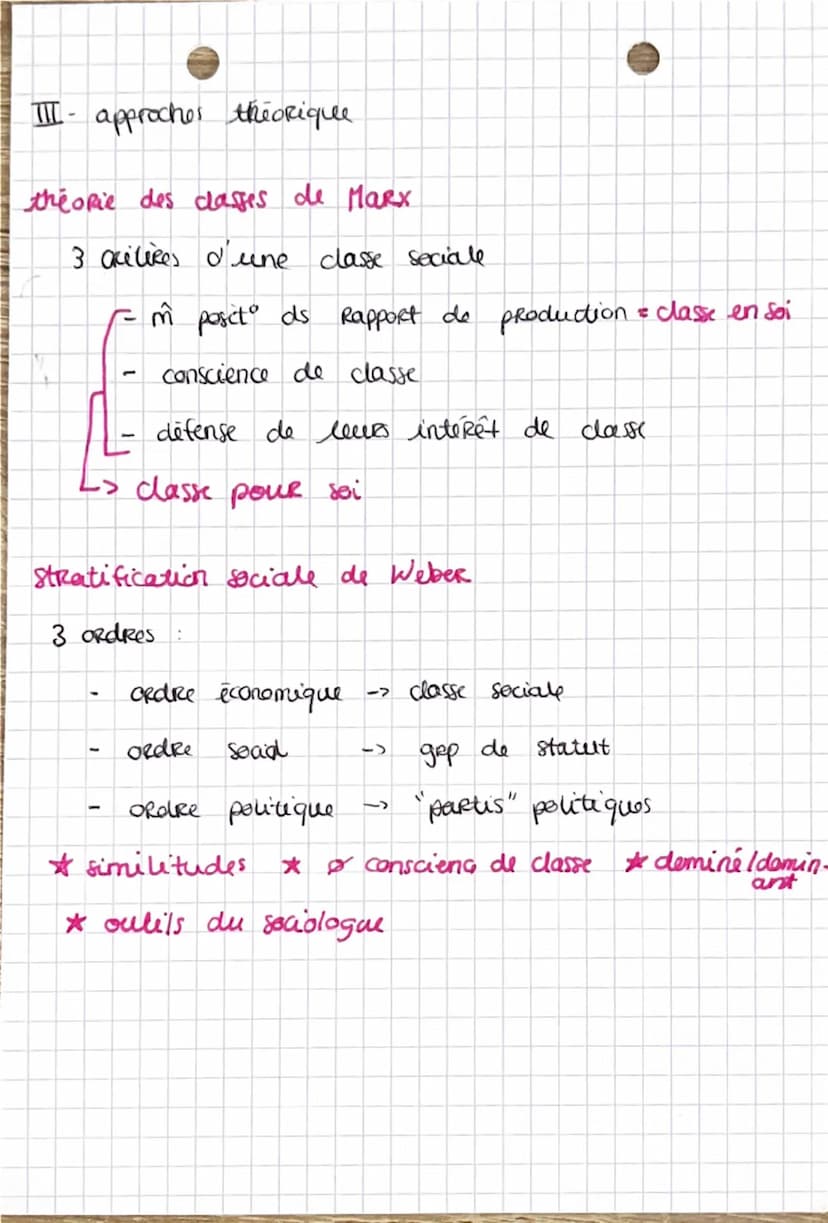 III - approches théorique
théorie des classes de Marx
3 critères d'une classe sociale
- m̂ posit° ds Rapport de production = classe en soi
- conscience de classe
- défense de leurs intérêt de classe
-> classe pour soi
stratification sociale de Weber
3 ordres :
- ordre économique -> classe sociale
- ordre social -> gep de statut
- ordre politique -> "partis" politiques
* similitudes * ø conscienc de classe * dominé/domin-
ant
* outils du sociologue